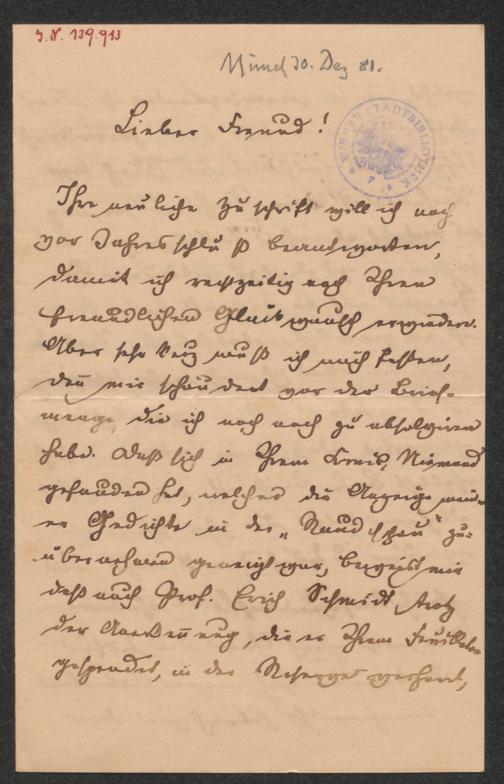 J.N. 139.913
Münch 30. Dez 81.
WIENER STADTBIBLIOTHEK
7
Lieber Freund!
Ihre neuliche Zuschrift will ich noch
vor Jahresschluß beantworten,
damit ich rechtzeitig noch Ihren
freundlichen Glückwunsch erwiedere.
Aber sehr kurz muß ich mich fassen,
denn mir schaudert vor der Brief-
menge, die ich noch zu absolviren
habe. Daß sich in Ihrem Kreis Niemand
gefunden hat, welcher die Anzeige mein-
er Gedichte in der „Rundschau" zu
übernehmen geneigt war, beweist mir
daß auch Prof. Erich Schmidt, trotz
der die er Ihrem
gespendet, in der gehört,